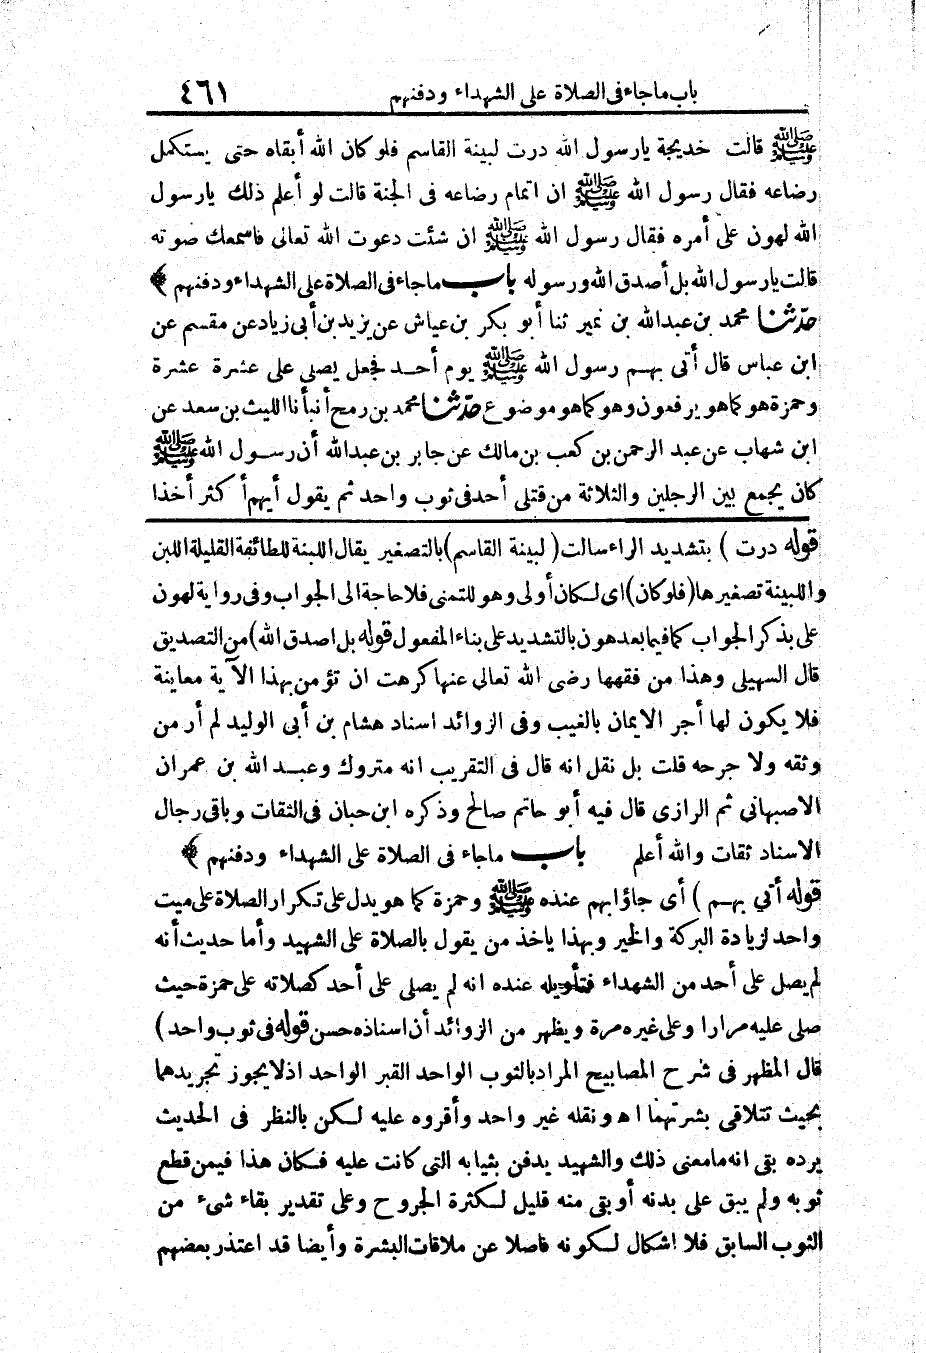 باب ماجاء فى الصلاة على الشهداء ودفنهم ٤٦١
ﷺ قالت خديجة يارسول الله درت لبينة القاسم فلو كان الله أبقاه حتى يستكمل
رضاعه فقال رسول الله ﷺ ان اتمام رضاعه فى الجنة قالت لو أعلم ذلك يارسول
الله لهون علىّ أمره فقال رسول الله ﷺ ان شئت دعوت الله تعالى فاسمعك صوته
قالت يارسول الله بل أصدق الله ورسوله باب ماجاء فى الصلاة على الشهداء ودفنهم ﴾
حدّثنا محمد بن عبدالله بن نمير ثنا أبو بكر بن عياش عن يزيد بن أبى زياد عن مقسم عن
ابن عباس قال أتى بهم رسول الله ﷺ يوم أحد فجعل يصلى على عشرة عشرة
وحمزة هو كما هو يرفعون وهو كما هو موضوع حدّثنا محمد بن رمح أنبأنا الليث بن سعد عن
ابن شهاب عن عبد الرحمن بن كعب بن مالك عن جابر بن عبدالله أن رسول الله ﷺ
كان يجمع بين الرجلين والثلاثة من قتلى أحد فى ثوب واحد ثم يقول أيهم أكثر أخذا
قوله درت ) بتشديد الراء سالت ( لبينة القاسم ) بالتصغير يقال اللبنة للطائفة القليلة اللبن
واللبينة تصغيرها ( فلو كان ) اى لكان أولى وهو للتمنى فلا حاجة الى الجواب وفى رواية لهون
على بذكر الجواب كما فيما بعد هون بالتشديد على بناء المفعول قوله بل اصدق الله ) من التصديق
قال السهيلى وهذا من فقهها رضى الله تعالى عنها كرهت ان تؤمن بهذا الآية معاينة
فلا يكون لها أجر الايمان بالغيب وفى الزوائد اسناد هشام بن أبى الوليد لم أر من
وثقه ولا جرحه قلت بل نقل انه قال فى التقريب انه متروك وعبد الله بن عمران
الاصبهانى ثم الرازى قال فيه أبو حاتم صالح وذكره ابن حبان فى الثقات وباقى رجال
الاسناد ثقات والله أعلم باب ماجاء فى الصلاة على الشهداء ودفنهم ﴾
قوله أتي بهم ) أى جاؤا بهم عنده ﷺ وحمزة كما هو يدل على تكرار الصلاة على ميت
واحد لزيادة البركة والخير وبهذا ياخذ من يقول بالصلاة على الشهيد وأما حديث أنه
لم يصل على أحد من الشهداء فتأويله عنده انه لم يصلى على أحد كصلاته على حمزة حيث
صلى عليه مرارا وعلى غيره مرة ويظهر من الزوائد أن اسناذه حسن قوله فى ثوب واحد )
قال المظهر فى شرح المصابيح المراد بالثوب الواحد القبر الواحد اذ لا يجوز تجريدهما
بحيث تتلاقى بشرتهما اه ونقله غير واحد وأقروه عليه لكن بالنظر فى الحديث
يرده بقى انه مامعنى ذلك والشهيد يدفن بثيابه التى كانت عليه فكان هذا فيمن قطع
ثوبه ولم يبق على بدنه أو بقى منه قليل لكثرة الجروح وعلى تقدير بقاء شىء من
الثوب السابق فلا اشكال لكونه فاصلا عن ملاقات البشرة وأيضا قد اعتذر بعضهم